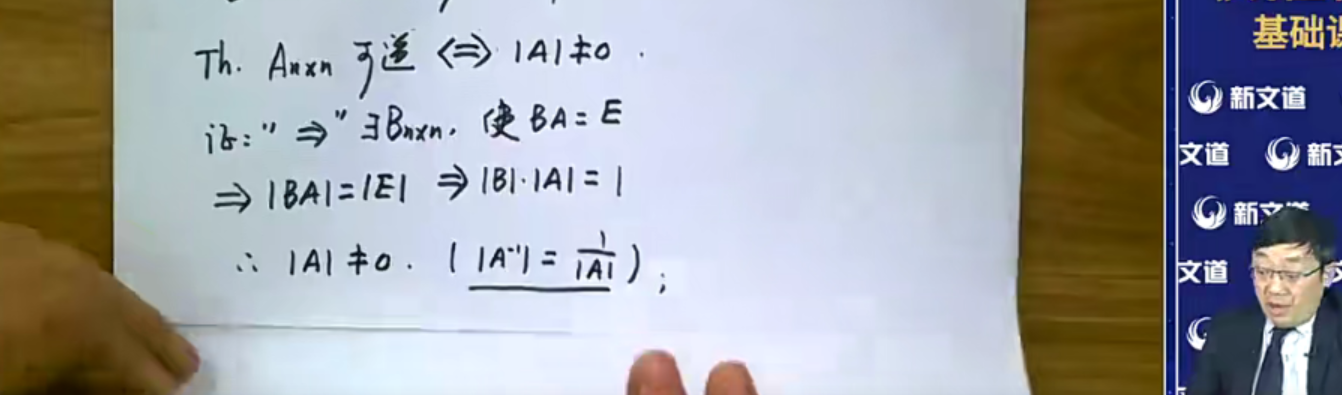 Th. Aₙₓₙ 可逆 ⇔ |A|≠0.
证:"⇒" ∃Bₙₓₙ, 使 BA=E
⇒ |BA|=|E| ⇒ |B|·|A|=1
∴ |A|≠0. (|A⁻¹|=1/|A|);
基础课
新文道
文道 新文
新文道
文道